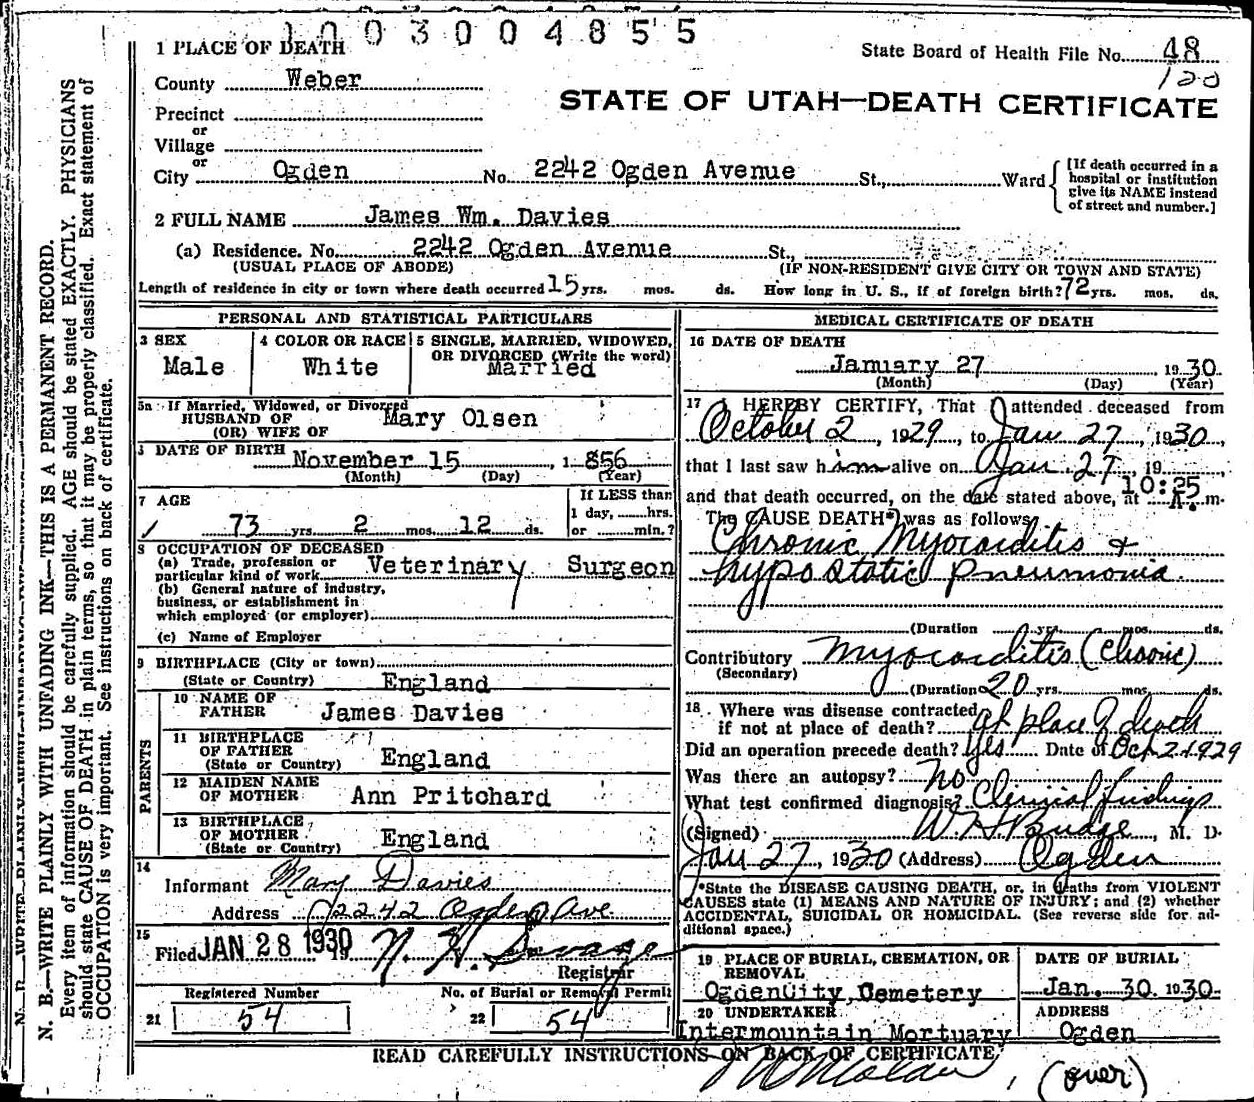 1 0 0 3 0 0 4 8 5 5
1 PLACE OF DEATH
State Board of Health File No. 48
County Weber
120
STATE OF UTAH—DEATH CERTIFICATE
Precinct
or
Village
or
City Ogden No. 2242 Ogden Avenue St., Ward
[If death occurred in a hospital or institution give its NAME instead of street and number.]
2 FULL NAME James Wm. Davies
(a) Residence. No. 2242 Ogden Avenue St.,
(USUAL PLACE OF ABODE) (IF NON-RESIDENT GIVE CITY OR TOWN AND STATE)
Length of residence in city or town where death occurred 15 yrs. mos. ds. How long in U. S., if of foreign birth? 72 yrs. mos. ds.
PERSONAL AND STATISTICAL PARTICULARS
3 SEX
Male
4 COLOR OR RACE
White
5 SINGLE, MARRIED, WIDOWED, OR DIVORCED (Write the word)
Married
5a If Married, Widowed, or Divorced
HUSBAND OF
(OR) WIFE OF
Mary Olsen
DATE OF BIRTH November 15, 1 856
(Month) (Day) (Year)
7 AGE
73 yrs. 2 mos. 12 ds.
If LESS than
1 day, hrs.
or min.?
8 OCCUPATION OF DECEASED
(a) Trade, profession or
particular kind of work Veterinary Surgeon
(b) General nature of industry,
business, or establishment in
which employed (or employer)
(c) Name of Employer
9 BIRTHPLACE (City or town)
(State or Country) England
PARENTS
10 NAME OF
FATHER James Davies
11 BIRTHPLACE
OF FATHER
(State or Country) England
12 MAIDEN NAME
OF MOTHER Ann Pritchard
13 BIRTHPLACE
OF MOTHER
(State or Country) England
14
Informant Mary Davies
Address 2242 Ogden Ave
15
Filed JAN 28 1930 19
Registrar
Registered Number
21 54
No. of Burial or Removal Permit
22 54
MEDICAL CERTIFICATE OF DEATH
16 DATE OF DEATH
January 27 1930
(Month) (Day) (Year)
17 I HEREBY CERTIFY, That I attended deceased from
October 2, 1929, to Jan 27, 1930,
that I last saw him alive on Jan. 27, 19
and that death occurred, on the date stated above, at 10:25 A. m.
The CAUSE DEATH* was as follows
Chronic Myocarditis &
hypostatic pneumonia.
(Duration yrs. mos. ds.
Contributory Myocarditis (Chronic)
(Secondary)
(Duration 20 yrs. mos. ds.
18 Where was disease contracted
if not at place of death? at place of death
Did an operation precede death? Yes Date of Oct 2 1929
Was there an autopsy? No
What test confirmed diagnosis? Clinical findings
(Signed) , M. D.
Jan 27, 1930 (Address) Ogden
*State the DISEASE CAUSING DEATH, or, in deaths from VIOLENT
CAUSES state (1) MEANS AND NATURE OF INJURY; and (2) whether
ACCIDENTAL, SUICIDAL OR HOMICIDAL. (See reverse side for ad-
ditional space.)
19 PLACE OF BURIAL, CREMATION, OR
REMOVAL
Ogden City Cemetery
DATE OF BURIAL
Jan. 30. 1930.
20 UNDERTAKER
Intermountain Mortuary
ADDRESS
Ogden
READ CAREFULLY INSTRUCTIONS ON BACK OF CERTIFICATE
(over)
N. B.—WRITE PLAINLY WITH UNFADING INK—THIS IS A PERMANENT RECORD.
Every item of information should be carefully supplied. AGE should be stated EXACTLY. PHYSICIANS
should state CAUSE OF DEATH in plain terms, so that it may be properly classified. Exact statement of
OCCUPATION is very important. See instructions on back of certificate.